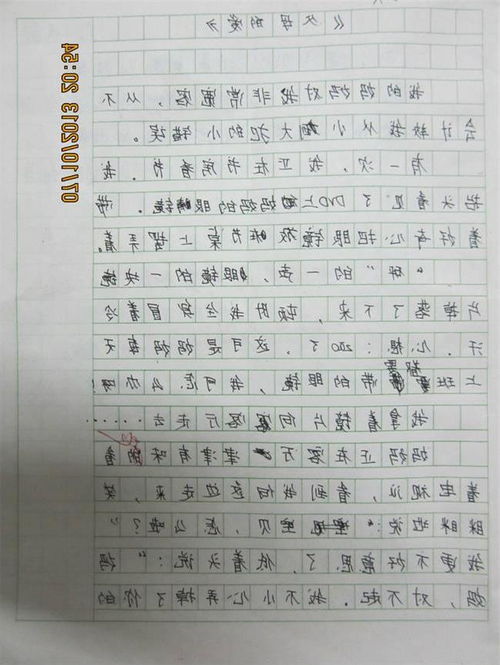 《父母的爱》
我的妈妈对我非常宽容,从不
会计较我从小大犯的小错误。
有一次,我正在书房看书。我
抬头看见了DVD上妈妈的眼镜。带
着好奇心把眼镜放在书桌上摆弄着。
“砰”的一声,眼镜的一块镜
片掉落了下来,顿时我全身冒着冷
汗。心想:200了,这可是妈妈每天
上班都要带的眼镜,我可怎么办啊
我拿着镜片向客厅走去……
妈妈正在客厅津津有味的看
着电视,看到我向她走来,笑
眯眯地说:“宝贝,怎么啦?”
我更不好意思了,低着头说:“妈
妈,对不起。我不小心弄掉了你的
07/01/2013 02:45